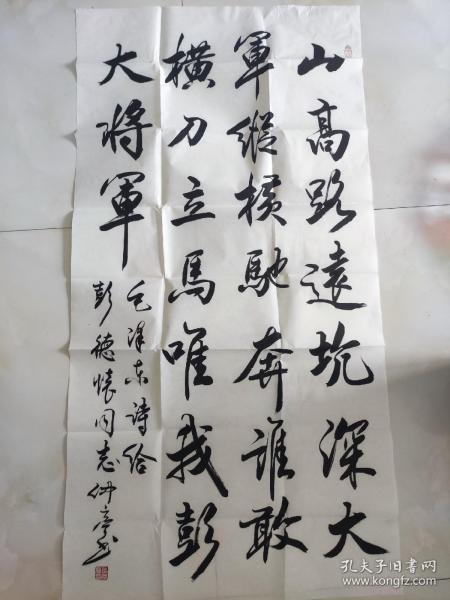 山高路遠坑深大
軍縱橫馳奔誰敢
橫刀立馬唯我彭
大將軍
毛澤东詩给
彭德懷同志
孔夫子旧书网
www.kongfz.com